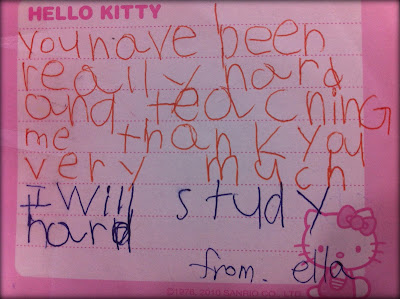 HELLO KITTY
You have been
really hard
and teaching
me thank you
very much
I will study
hard
from. ella
©1976, 2010 SANRIO CO., LTD.